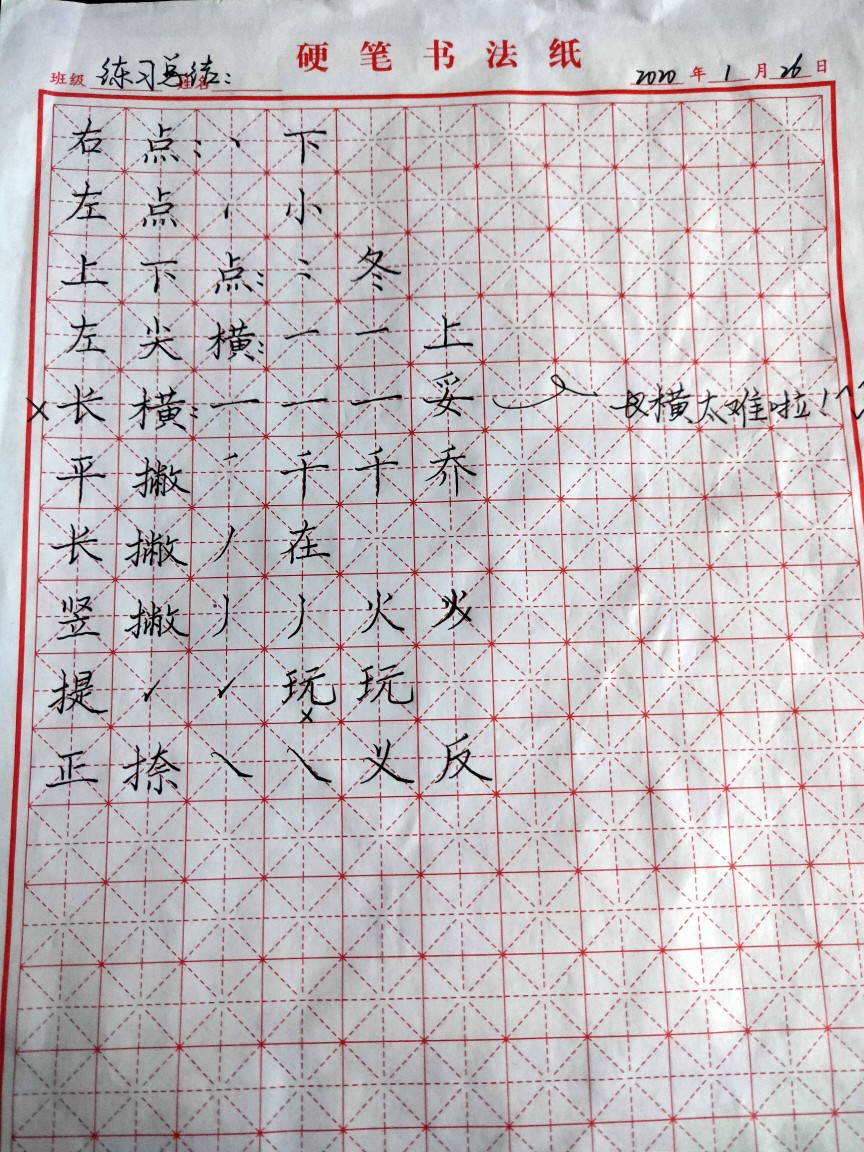 硬笔书法纸
班级 练习总结： 姓名 2020年1月26日
右点：丶下
左点 小
上下点： 冬
左尖横：一一上
×长横：一一一妥 横太难啦！
平撇 ㇒ 千千乔
长撇丿在
竖撇丿丿火火
提 ㇀ ㇀ 玩玩
×
正捺㇏㇏义反